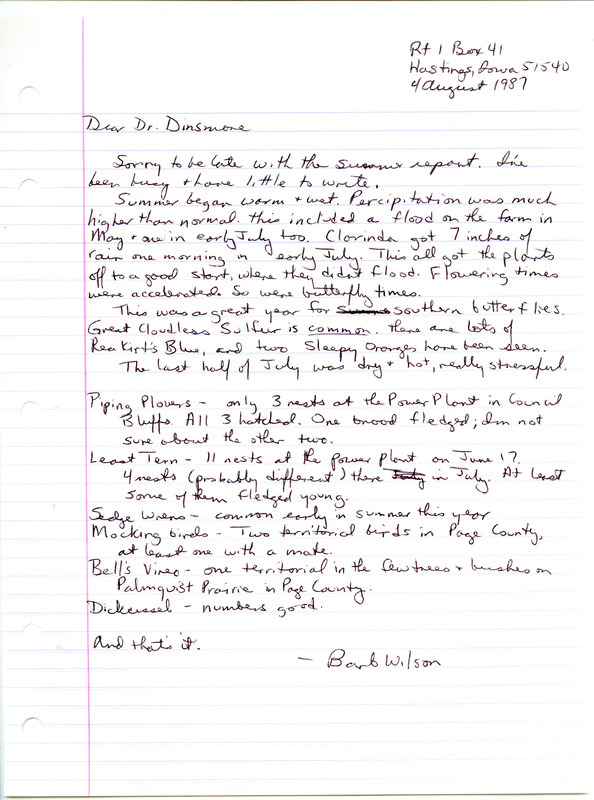 Rt 1 Box 41
Hastings, Iowa 51540
4 August 1987
Dear Dr. Dinsmore
Sorry to be late with the summer report. I've
been busy + have little to write.
Summer began warm + wet. Percipitation was much
higher than normal. this included a flood on the farm in
May + one in early July too. Clarinda got 7 inches of
rain one morning in early July. This all got the plants
off to a good start, where they didn't flood. Flowering times
were accelerated. So were butterfly times.
This was a great year for southern butterflies.
Great Cloudless Sulfur is common. there are lots of
Reakirt's Blue, and two Sleepy Oranges have been seen.
The last half of July was dry + hot, really stressful.
Piping Plovers - only 3 nests at the Power Plant in Council
Bluffs. All 3 hatched. One brood fledged; I'm not
sure about the other two.
Least Tern - 11 nests at the power plant on June 17.
4 nests (probably different) there in July. At least
some of them fledged young.
Sedge Wrens - common early in summer this year
Mocking birds - Two territorial birds in Page County,
at least one with a mate.
Bell's Vireo - one territorial in the few trees + bushes on
Palmquist Prairie in Page County.
Dickcissel - numbers good.
And that's it.
- Barb Wilson